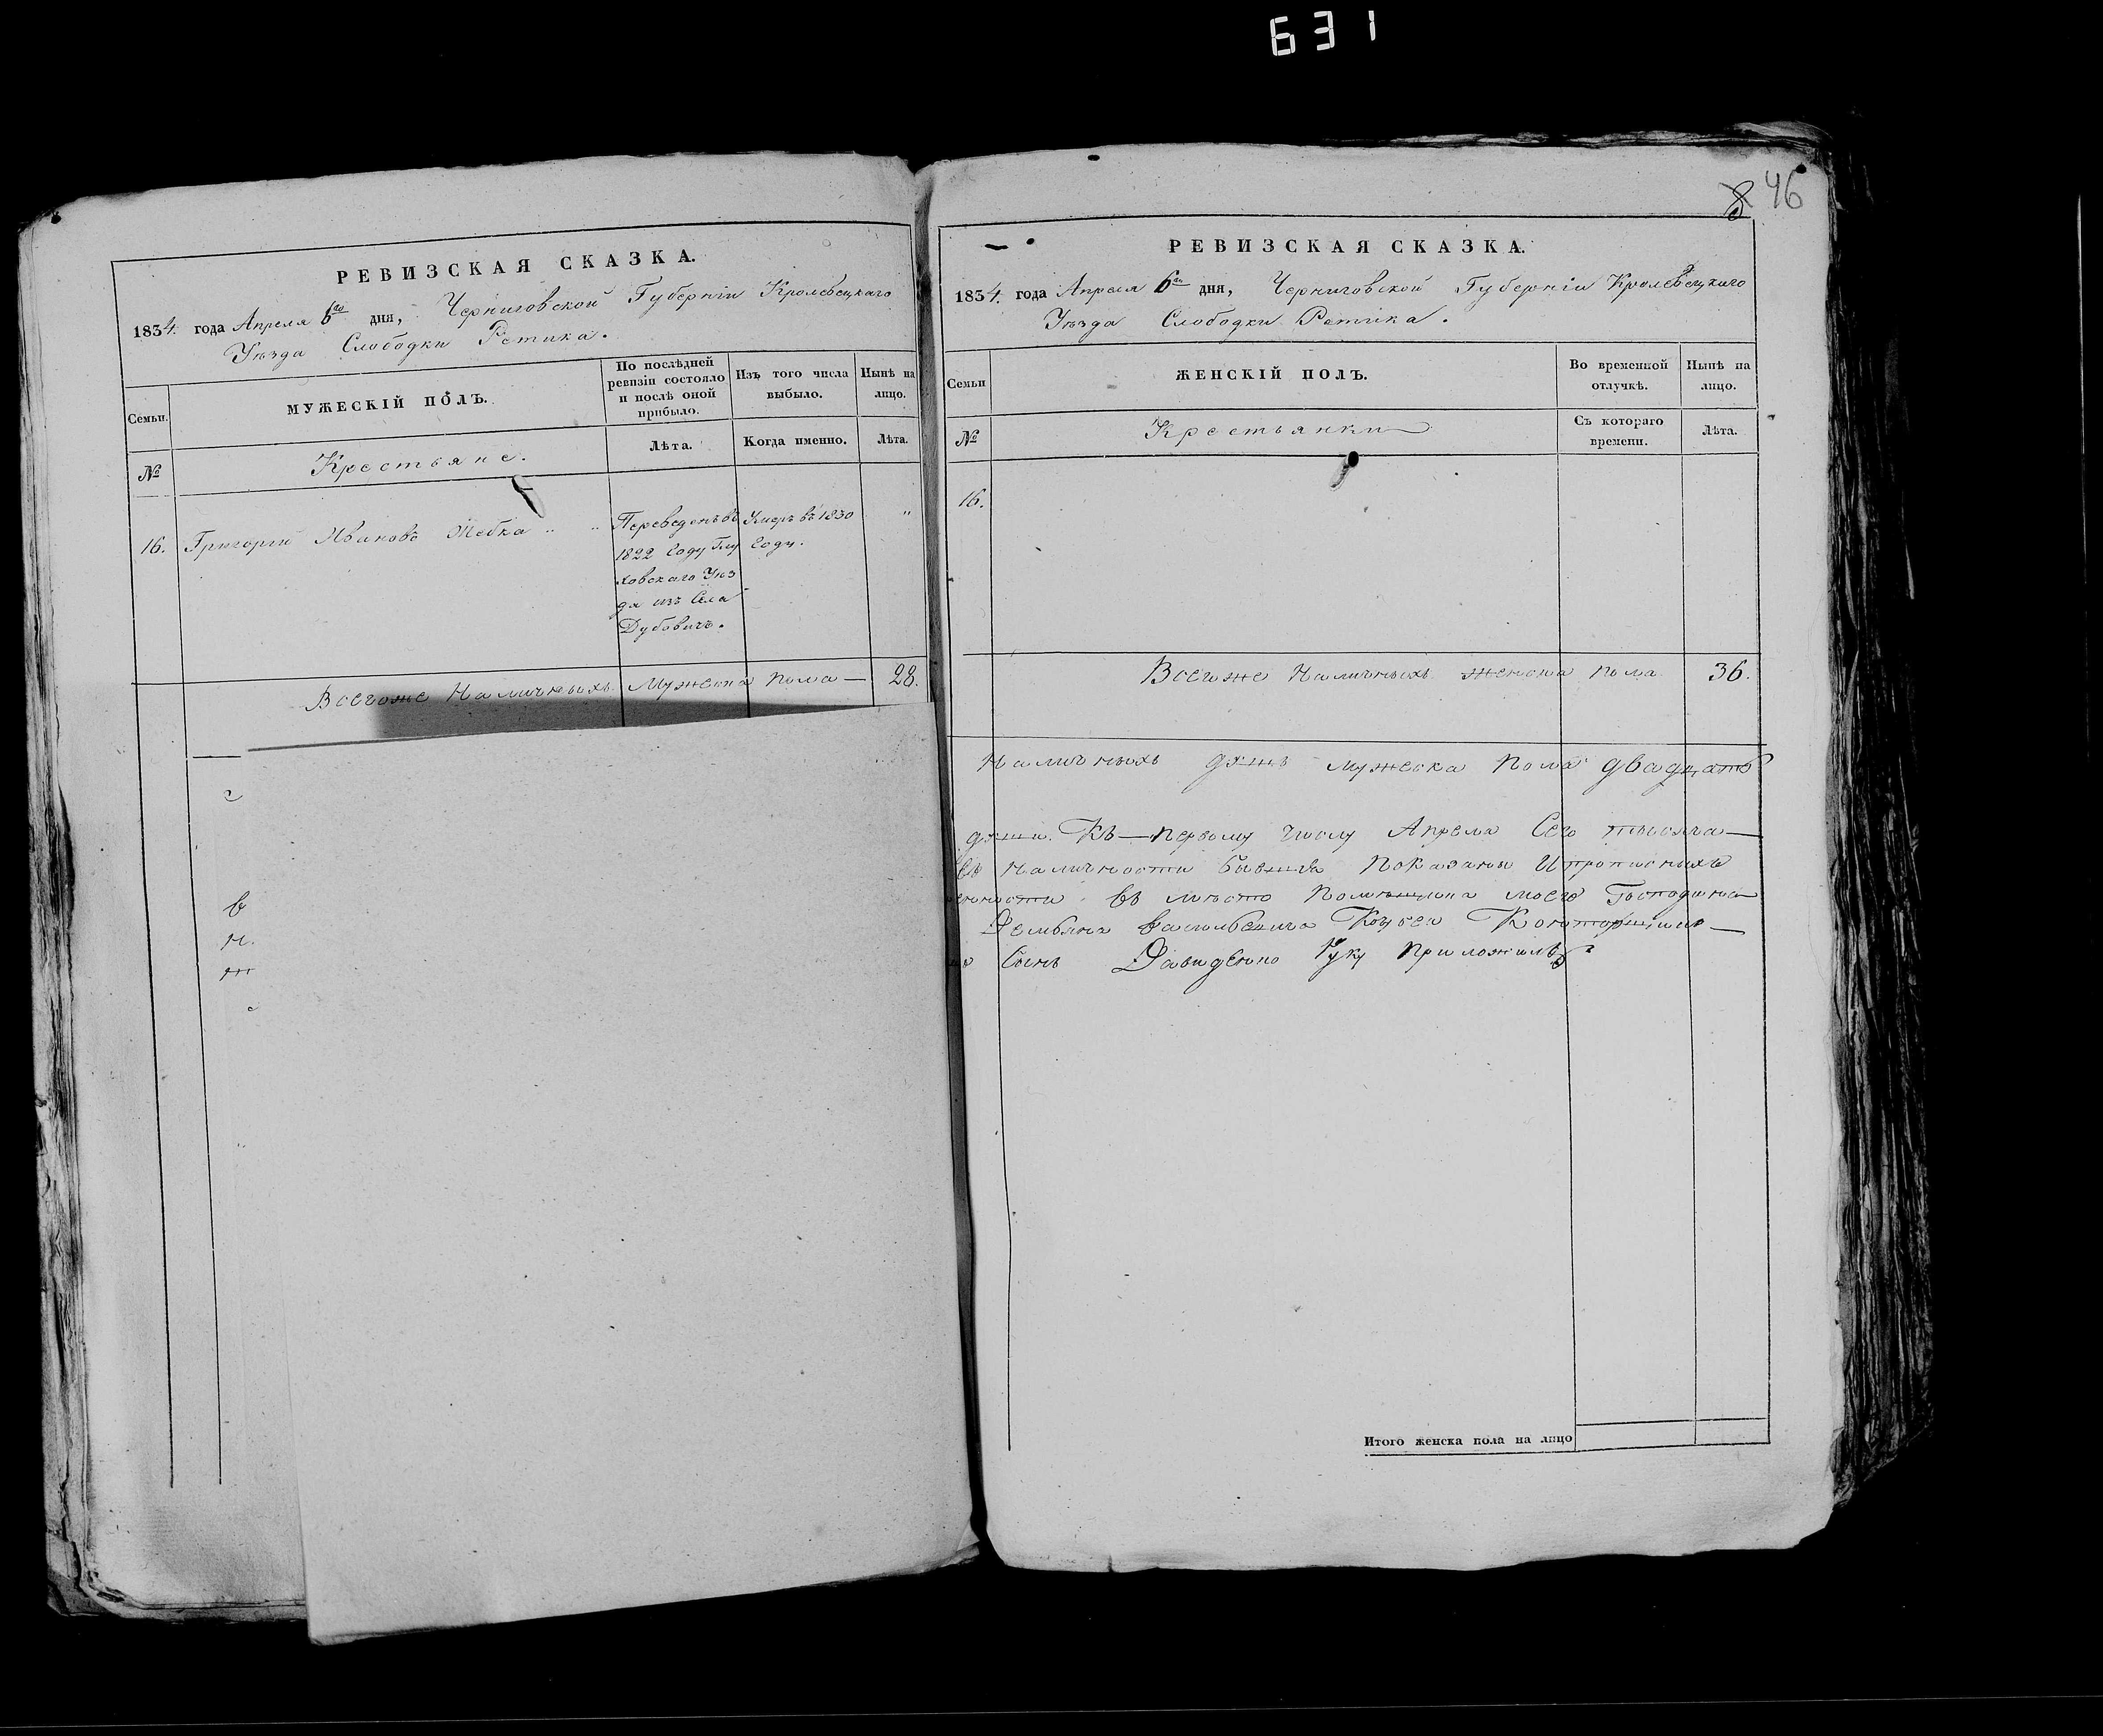 631
РЕВИЗСКАЯ СКАЗКА.
1834. года Апреля 6го дня, Черниговской Губерніи Кролевецкаго
Уезда Слободки Ретика.
Семьи.
МУЖЕСКІЙ ПОЛЪ.
По послѣдней
ревизіи состояло
и послѣ оной
прибыло.
Изъ того числа
выбыло.
Нынѣ на
лицо.
№
Крестьяне.
Лѣта.
Когда именно.
Лѣта.
16. Григорій Ивановъ
Переведенъ въ
1822 Году Глу
ховскаго Уез
да изъ Села
Дубовичъ.
Умеръ въ 1830
Году.
"
Всегоже Наличныхъ Мужеска пола — 28.
в
н.
8 46
РЕВИЗСКАЯ СКАЗКА.
1834. года Апреля 6го дня, Черниговской Губерніи Кролевецкаго
Уезда Слободки Ретика.
Семьи
ЖЕНСКІЙ ПОЛЪ.
Во временной
отлучкѣ.
Нынѣ на
лицо.
№
Крестьянки
Съ котораго
времени.
Лѣта.
16.
Всегоже Наличныхъ женска пола 36.
Наличныхъ душъ мужеска пола двадцать
души. Къ — первому числу Апреля Сего —
въ наличности показаны И прописныхъ
въ место моего Господина
Демьяна Васильевича
Сынъ Давиденко Руку приложилъ
Итого женска пола на лицо